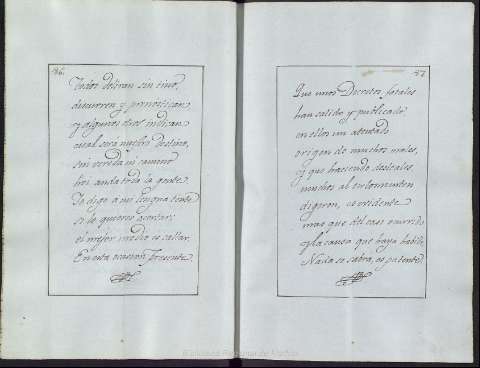 86.
Todos deliran sin tino,
discurren y pronostican
y algunos dias indican
cual será nuestro destino,
sin vereda ni camino
hoi anda toda la gente.
Yo digo a mi lengua tente
si lo quieres acertar;
el mejor medio es callar
En esta ocasion Presente.
87
Que unos Decretos fatales
han salido y publicado
en ellos un atentado
origen de muchos males,
y que haciendo desleales
muchos al
digeron, es evidente
mas que del caso ocurrido
y la causa que haya habido
Nada se sabra, es patente.
Biblioteca Regional de Madrid